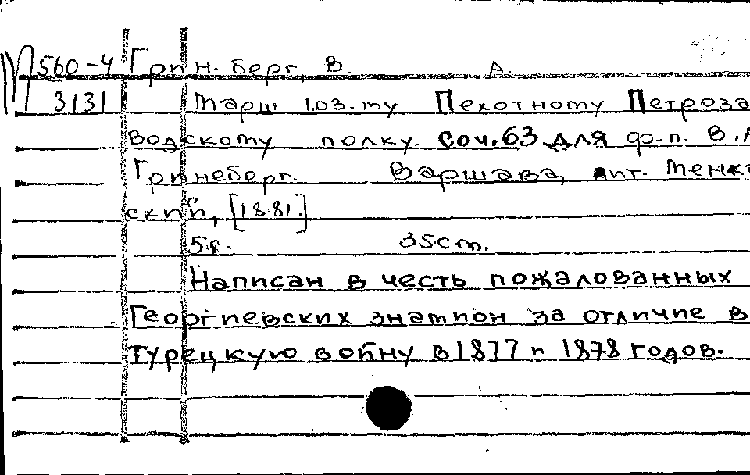 М560-4 Гринберг, В. А.
3131 Марш 103-му Пехотному Петроза
водскому полку. соч. 63 для ф.-п. В. А
Гриneберг. Варшава, лит. Менк
ский, [1881.]
5 с. 35 cm.
Написан в честь пожалованных
Георгиевских знамион за отличие в
Турецкую войну в 1877 и 1878 годов.